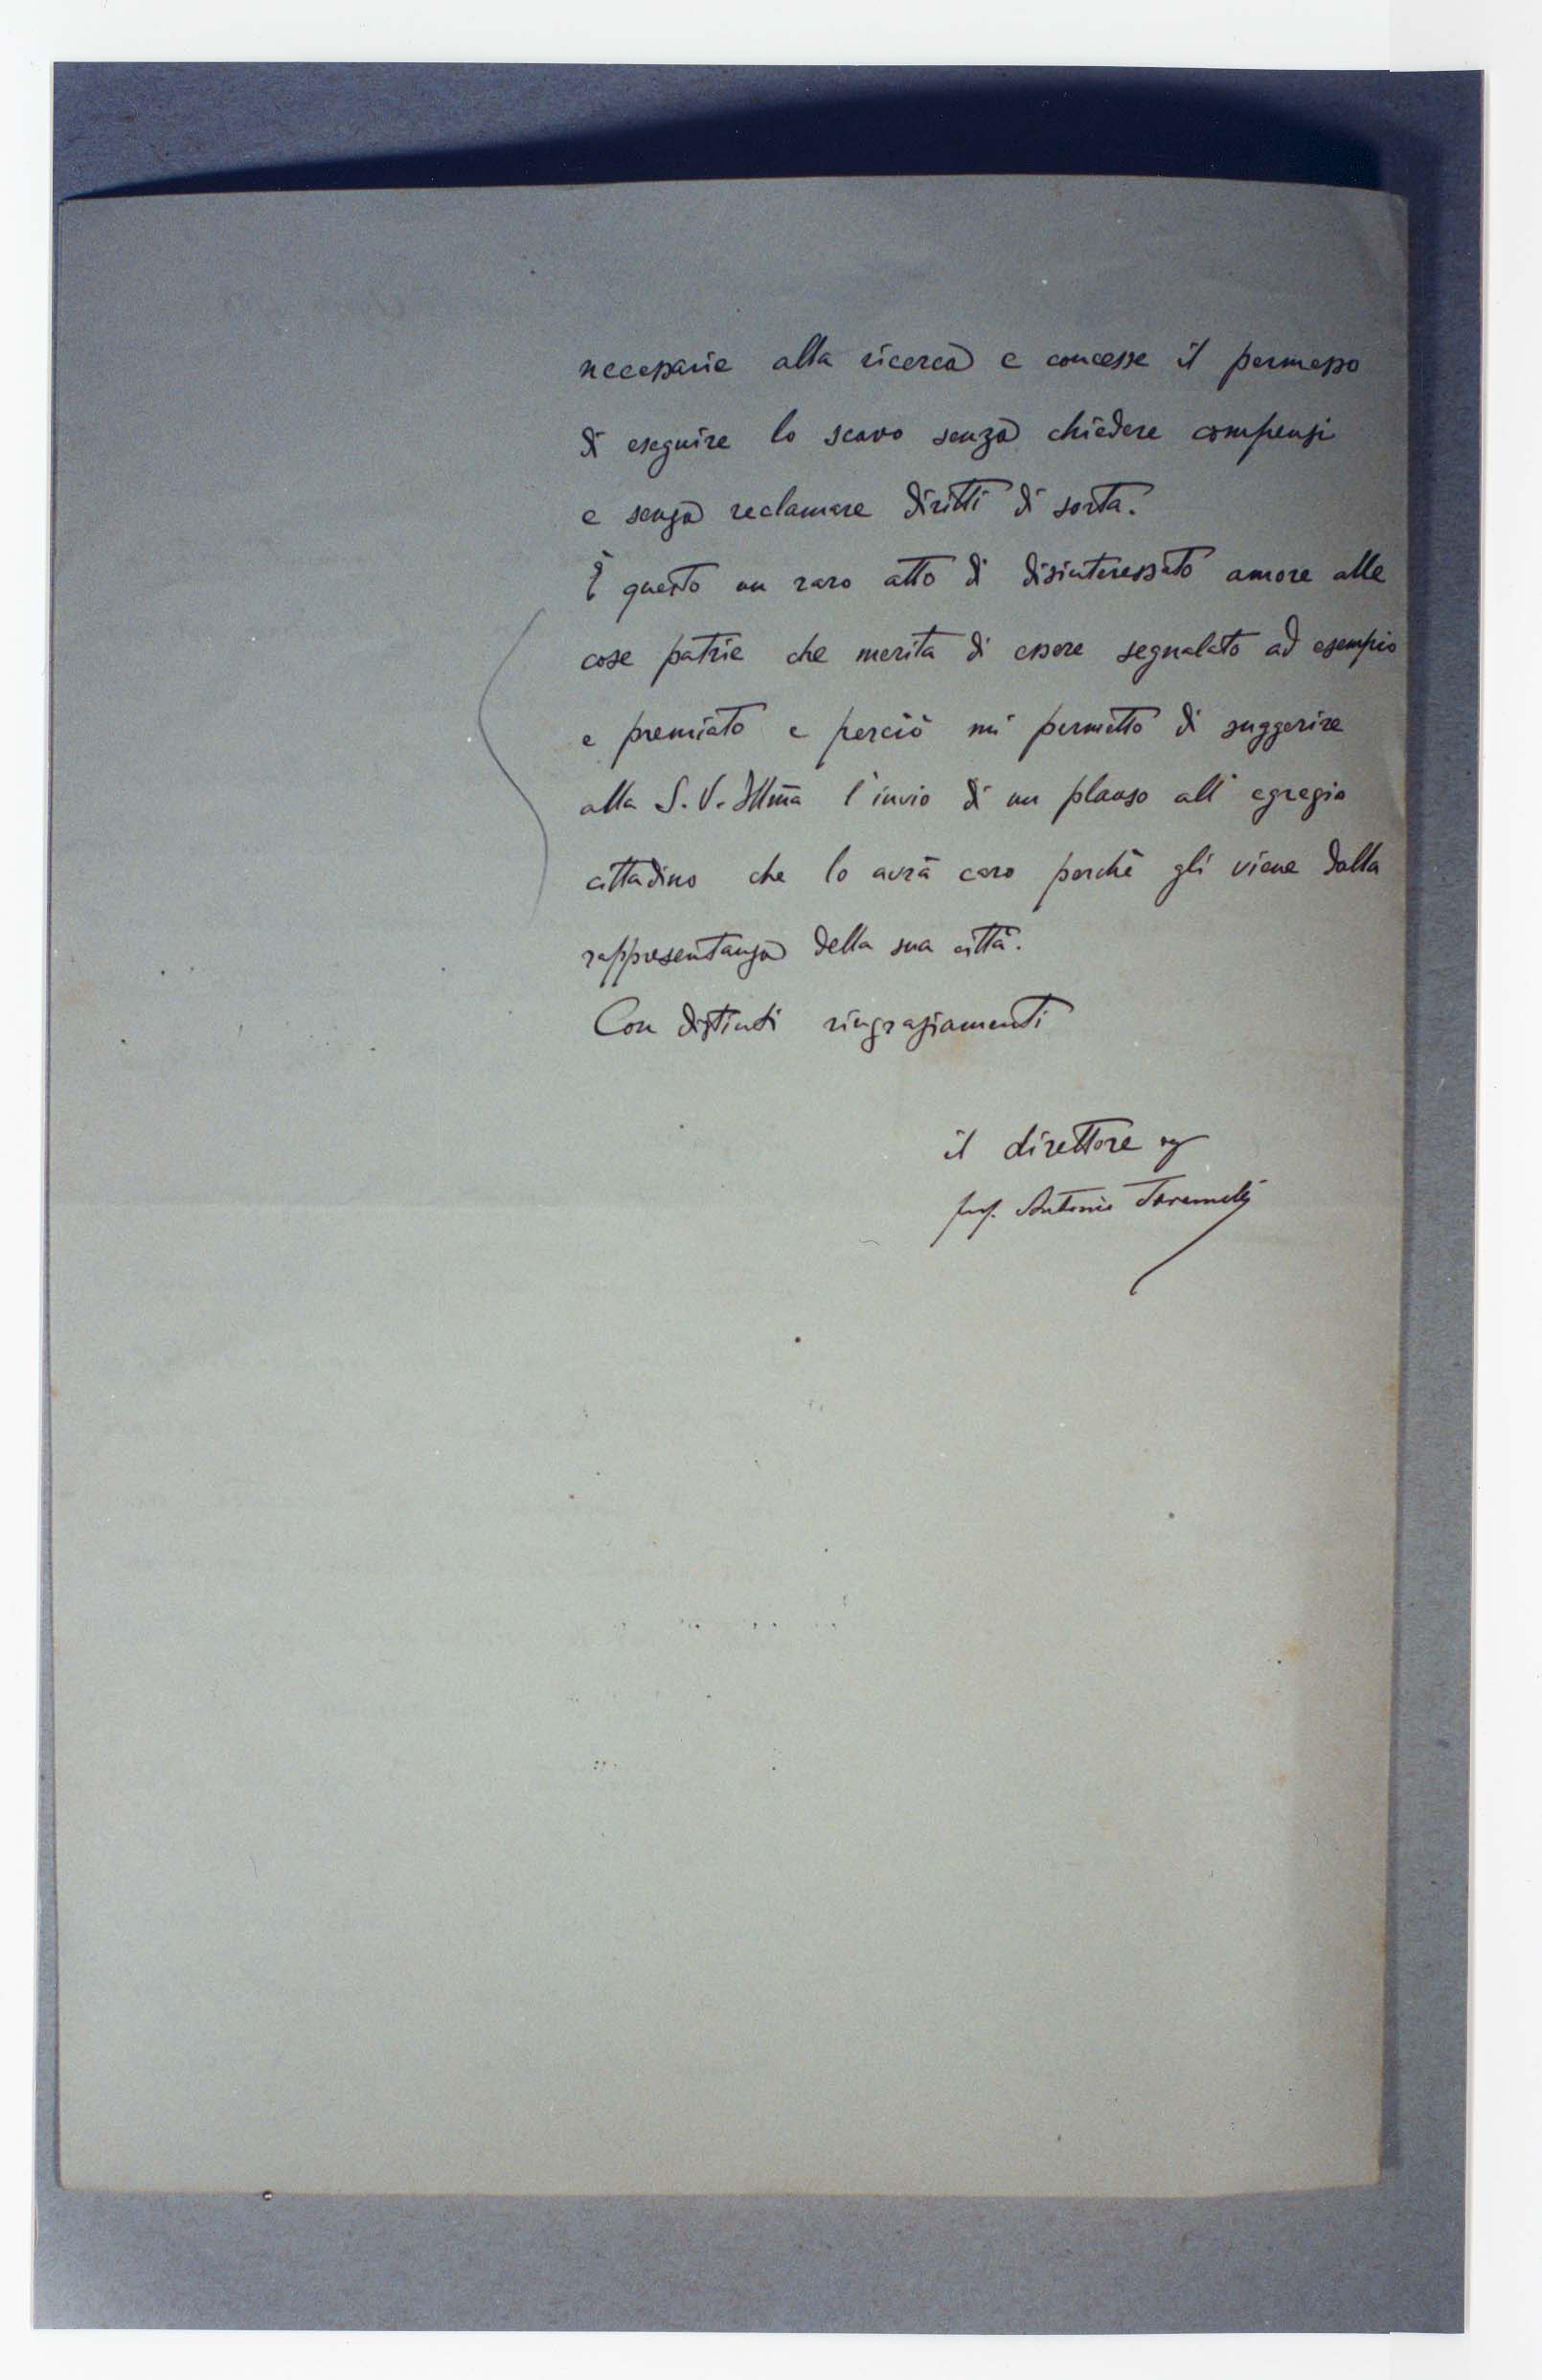 necessarie alla ricerca e concesse il permesso
di eseguire lo scavo senza chiedere compensi
e senza reclamare diritti di sorta.
È questo un raro atto di disinteressato amore alle
cose patrie che merita di essere segnalato ad esempio
e premiato e perciò mi permetto di suggerire
alla S. V. Illma l'invio di un plauso all'egregio
cittadino che lo avrà caro perchè gli viene dalla
rappresentanza della sua città.
Con distinti ringraziamenti
il direttore
prof. Antonio Taramelli